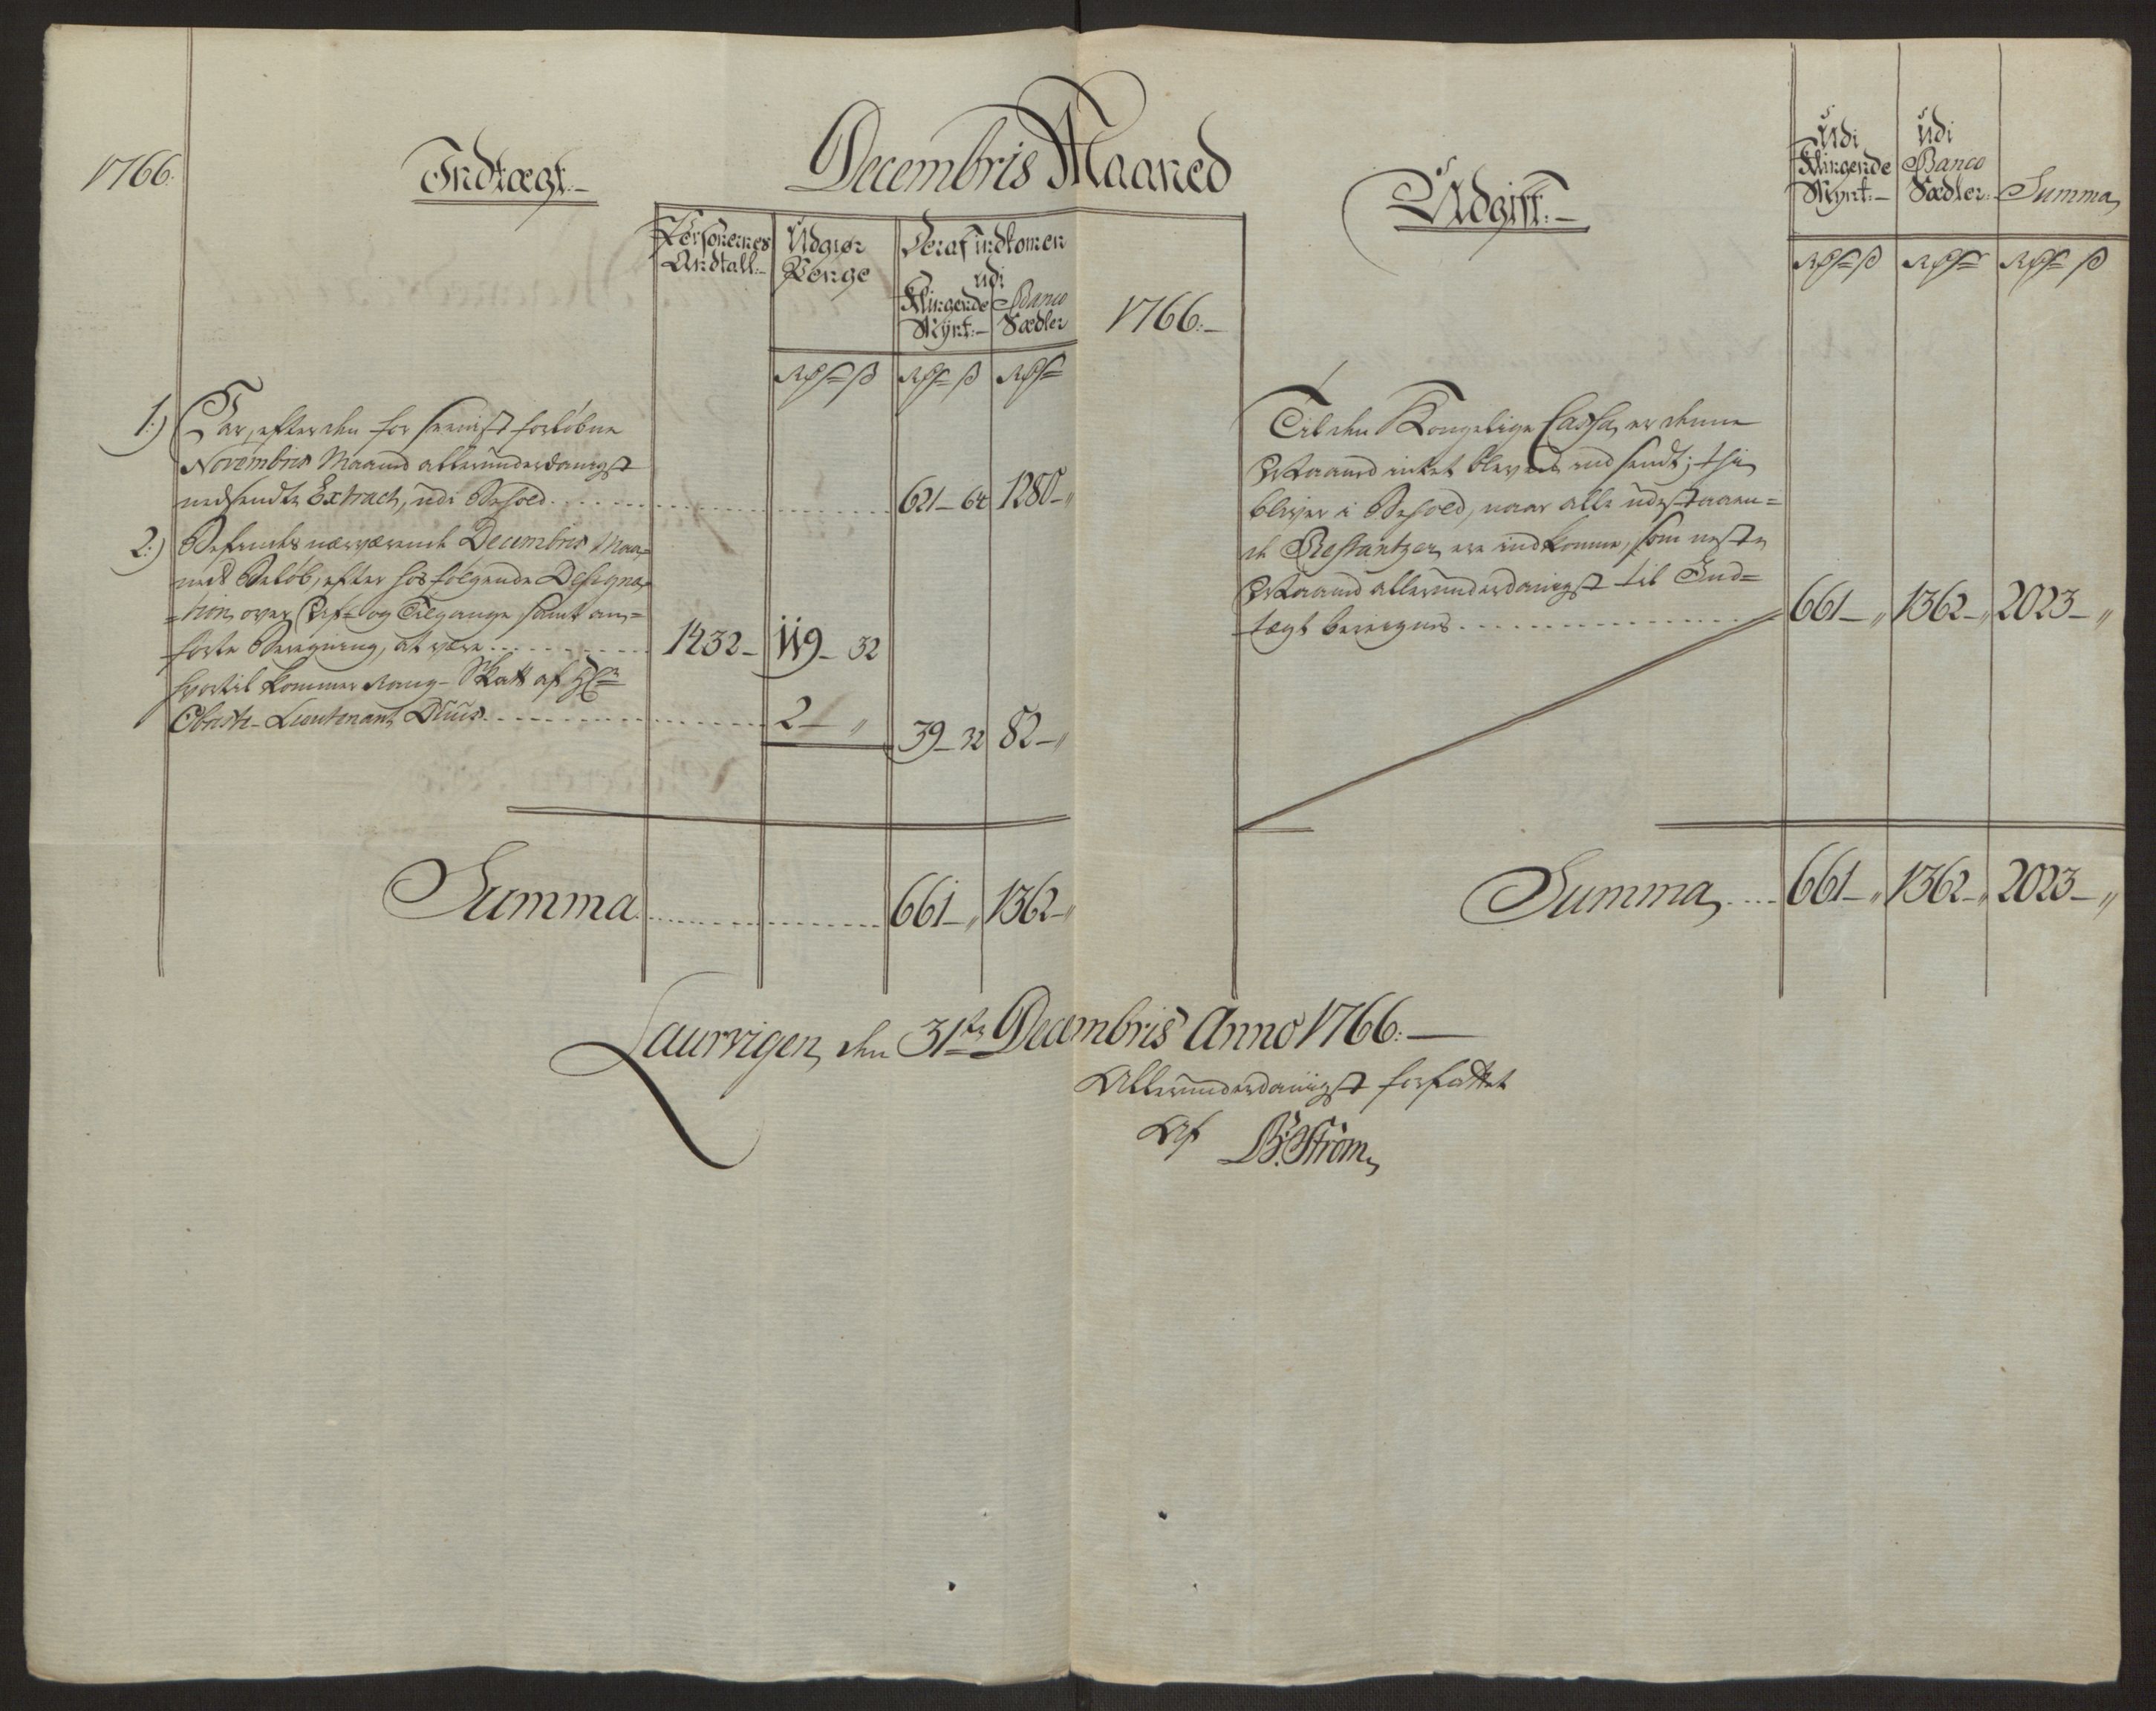 Decembris Maaned
1766.
Indtægt:-
Personernes Andtall:-
Udgiør Penge
Deraf indkomen udi
Klingende Mynt:-
Banco Sædler
Rdr ß
Rdr ß
Rdr
1.) Var, efter den for sennist forløbne
Novembris Maaned allerunderdanigst
nedsendte Extract, udi Behold
621 - 64
1280 - "
2.) Befindes nærværende Decembris Maa-
neds Beløb, efter hosfølgende Designa-
=tion, over Af- og Tilgange samt an-
førte Beregning, at være
1432 -
119 - 32
hvortil kommer Rang-Skatt af Hr
Obriste-Lieutenant Duus
2 - "
39 - 32
82 - "
Summa
661 - "
1362 - "
1766:-
Udgift:-
Udi Klingende Mynt:-
Udi Banco Sædler:
Summa
Rdr ß
Rdr
Rdr ß
Til den Kongelige Cassa, er denne
Maaned intet bleven indsendt; thi
bliver i Behold, naar alle udestaaen=
de Restantzer, ere indkomne, som neste
Maaned allerunderdanigst til Ind=
tægt beregnes
661 - "
1362 - "
2023 - "
Summa
661 - "
1362 - "
2023 - "
Laurvigen, den 31te Decembris Anno 1766:-
Allerunderdanigst forfattet
Af B. Strøm